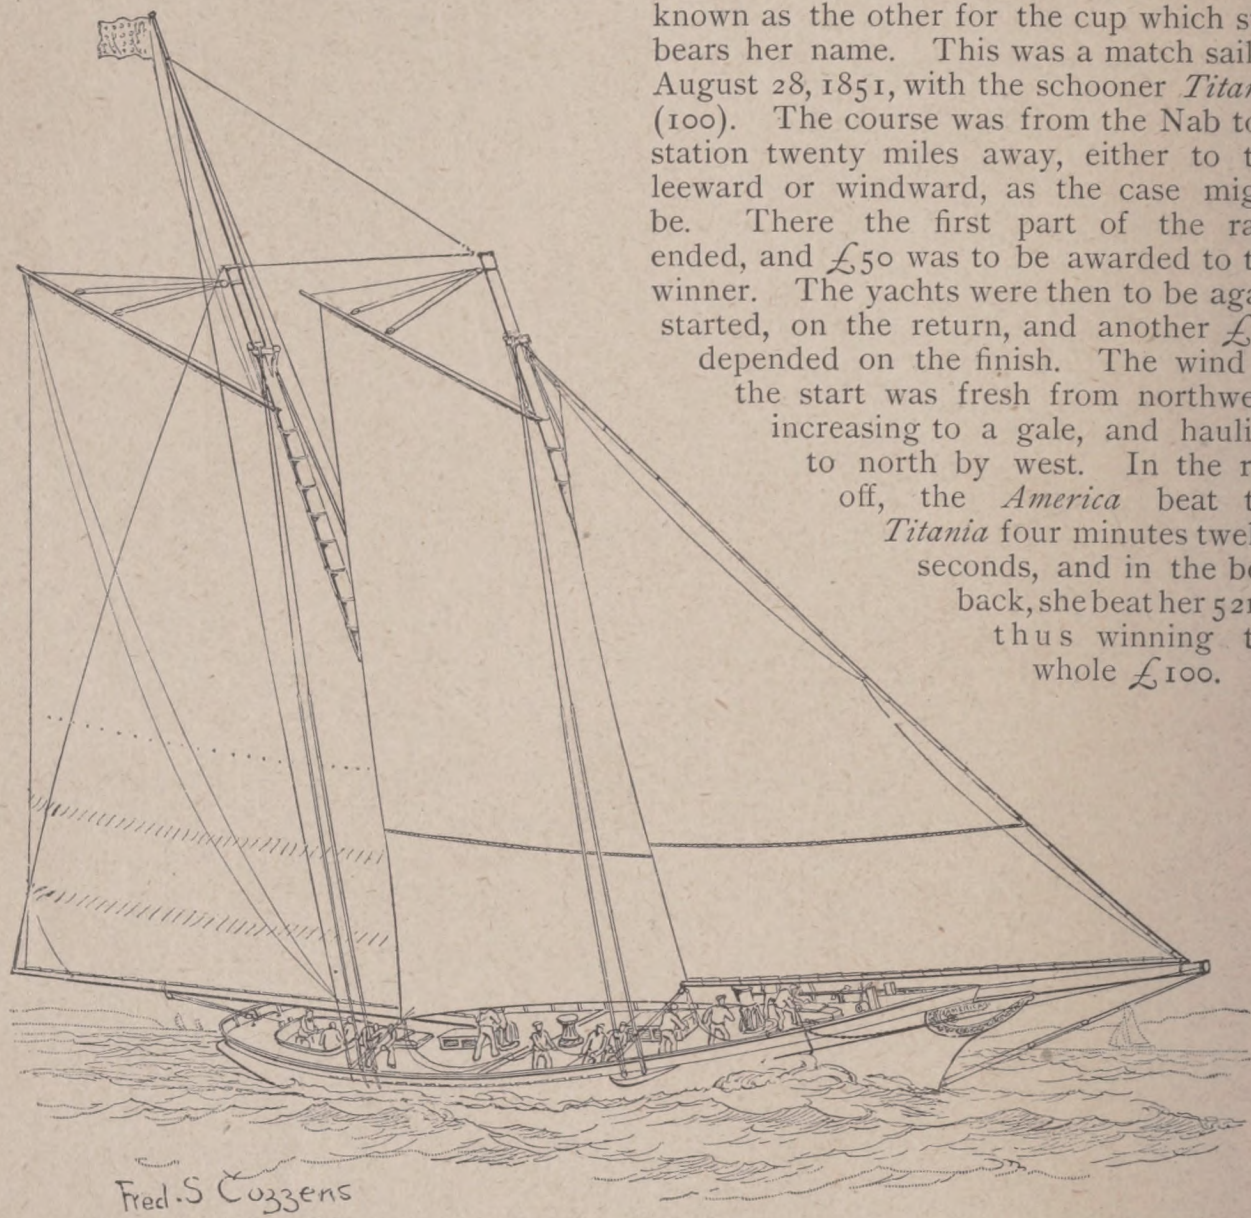 known as the other for the cup which
bears her name. This was a match
August 28, 1851, with the schooner
(100). The course was from the Nab
station twenty miles away, either to
leeward or windward, as the case
be. There the first part of the
ended, and £50 was to be awarded to
winner. The yachts were then to be
started, on the return, and another
depended on the finish. The wind
the start was fresh from
increasing to a gale, and
to north by west. In the
off, the America beat
Titania four minutes
seconds, and in the
back, she beat her
thus winning
whole £100.
Fred. S Cozzens